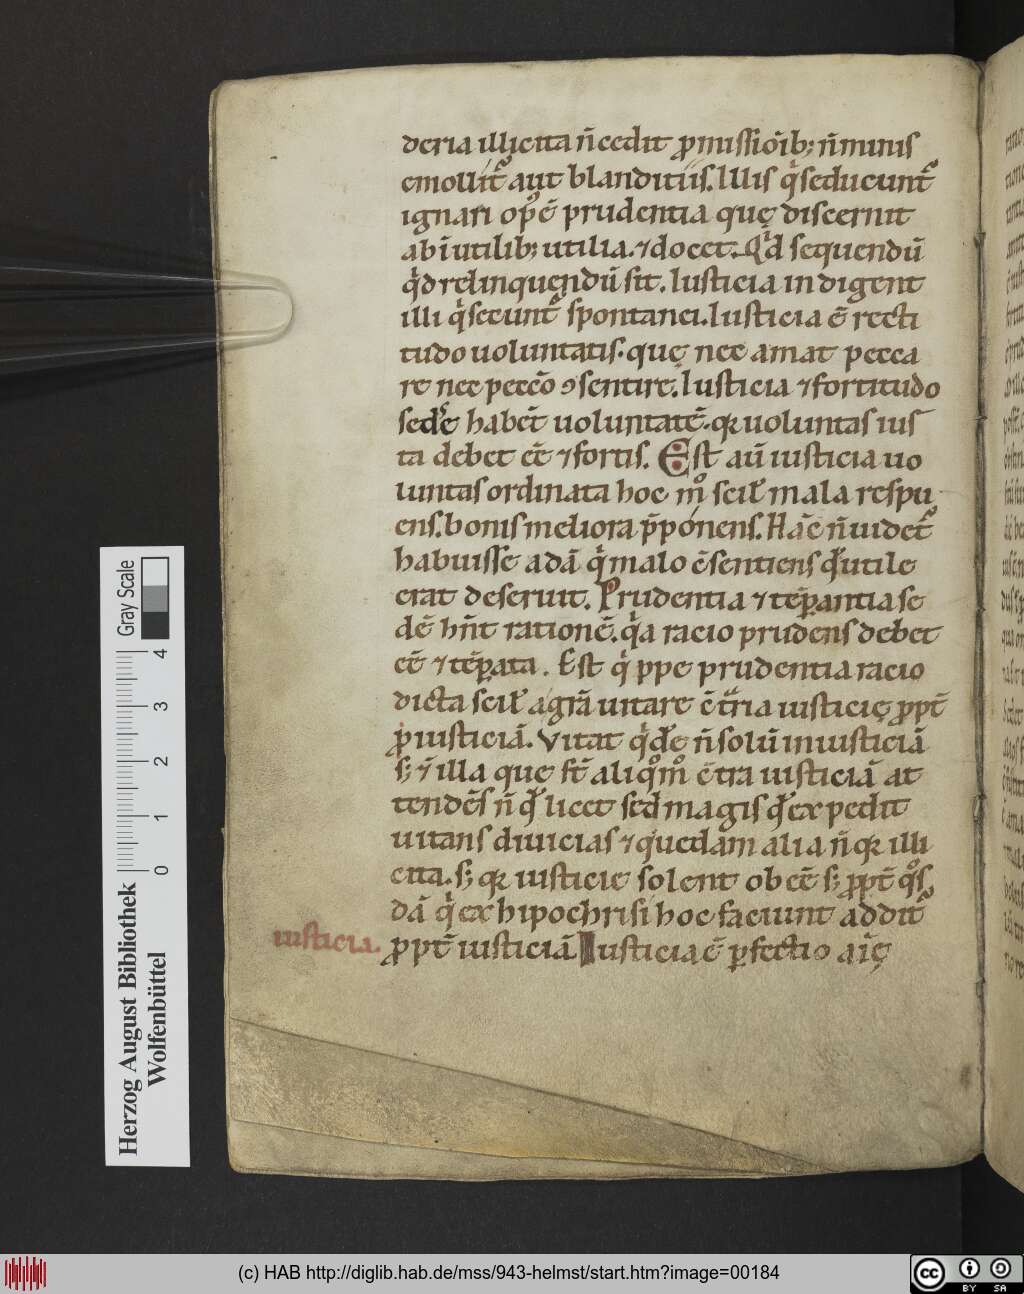 deria illicita n̄ cedit ꝓmissiōib; n̄ minis
emollit᷑ aut blanditiis. Illis qͥ seducunt᷑
ignari opͦ ē prudentia quę discernit
ab īutilib; utilia. ⁊ docet. Qͥd sequendū
qͥd relinquendū sit. Iusticia indigent
illi qͥ seccunt᷑ spontanei. Iusticia ē recti
tudo uoluntatis. quę nec amat pecca
re nec peccō ꝯsentire. Iusticia ⁊ fortitudo
sedē habēt uoluntatē. qꝛ uoluntas ius
ta debet eē ⁊ fortis. Est aū iusticia uo
luntas ordinata hoc mͦ scił mala respu
ens. bonis meliora p̄ponens. Hāc n̄ uidet᷑
habuisse adā qͥ malo ꝯ̄sentiens qd̄ utile
erat deseruit. Prudentia ⁊ tēꝑantia se
dē hn̄t rationē. qͥa racio prudens debet
eē ⁊ tēꝑata. Est qͥppe prudentia racio
dicta scił agrā uitare ꝯ̄tria iusticię ꝓpt̄
ꝓ iusticiā. Vitat qͥdē n̄ solū iniusticiā
s; ⁊ illa que st̄ aliqͦ mͦ ꝯ̄tra iusticiā at
tendēs n̄ qd̄ licet sed magis qd̄ expedit
uitans diuicias ⁊ quedam alia n̄ qꝛ illi
cita. s; qꝛ iusticie solent obeē s; ꝓpt̄ qͦs
dā qͥ ex hipochrisi hoc faciunt addit᷑
iusticia. ꝓpt̄ iusticiā. Iusticia ē ꝑfectio aīę
Herzog August Bibliothek
Wolfenbüttel
0 1 2 3 4
Gray Scale
(c) HAB http://diglib.hab.de/mss/943-helmst/start.htm?image=00184
cc BY SA